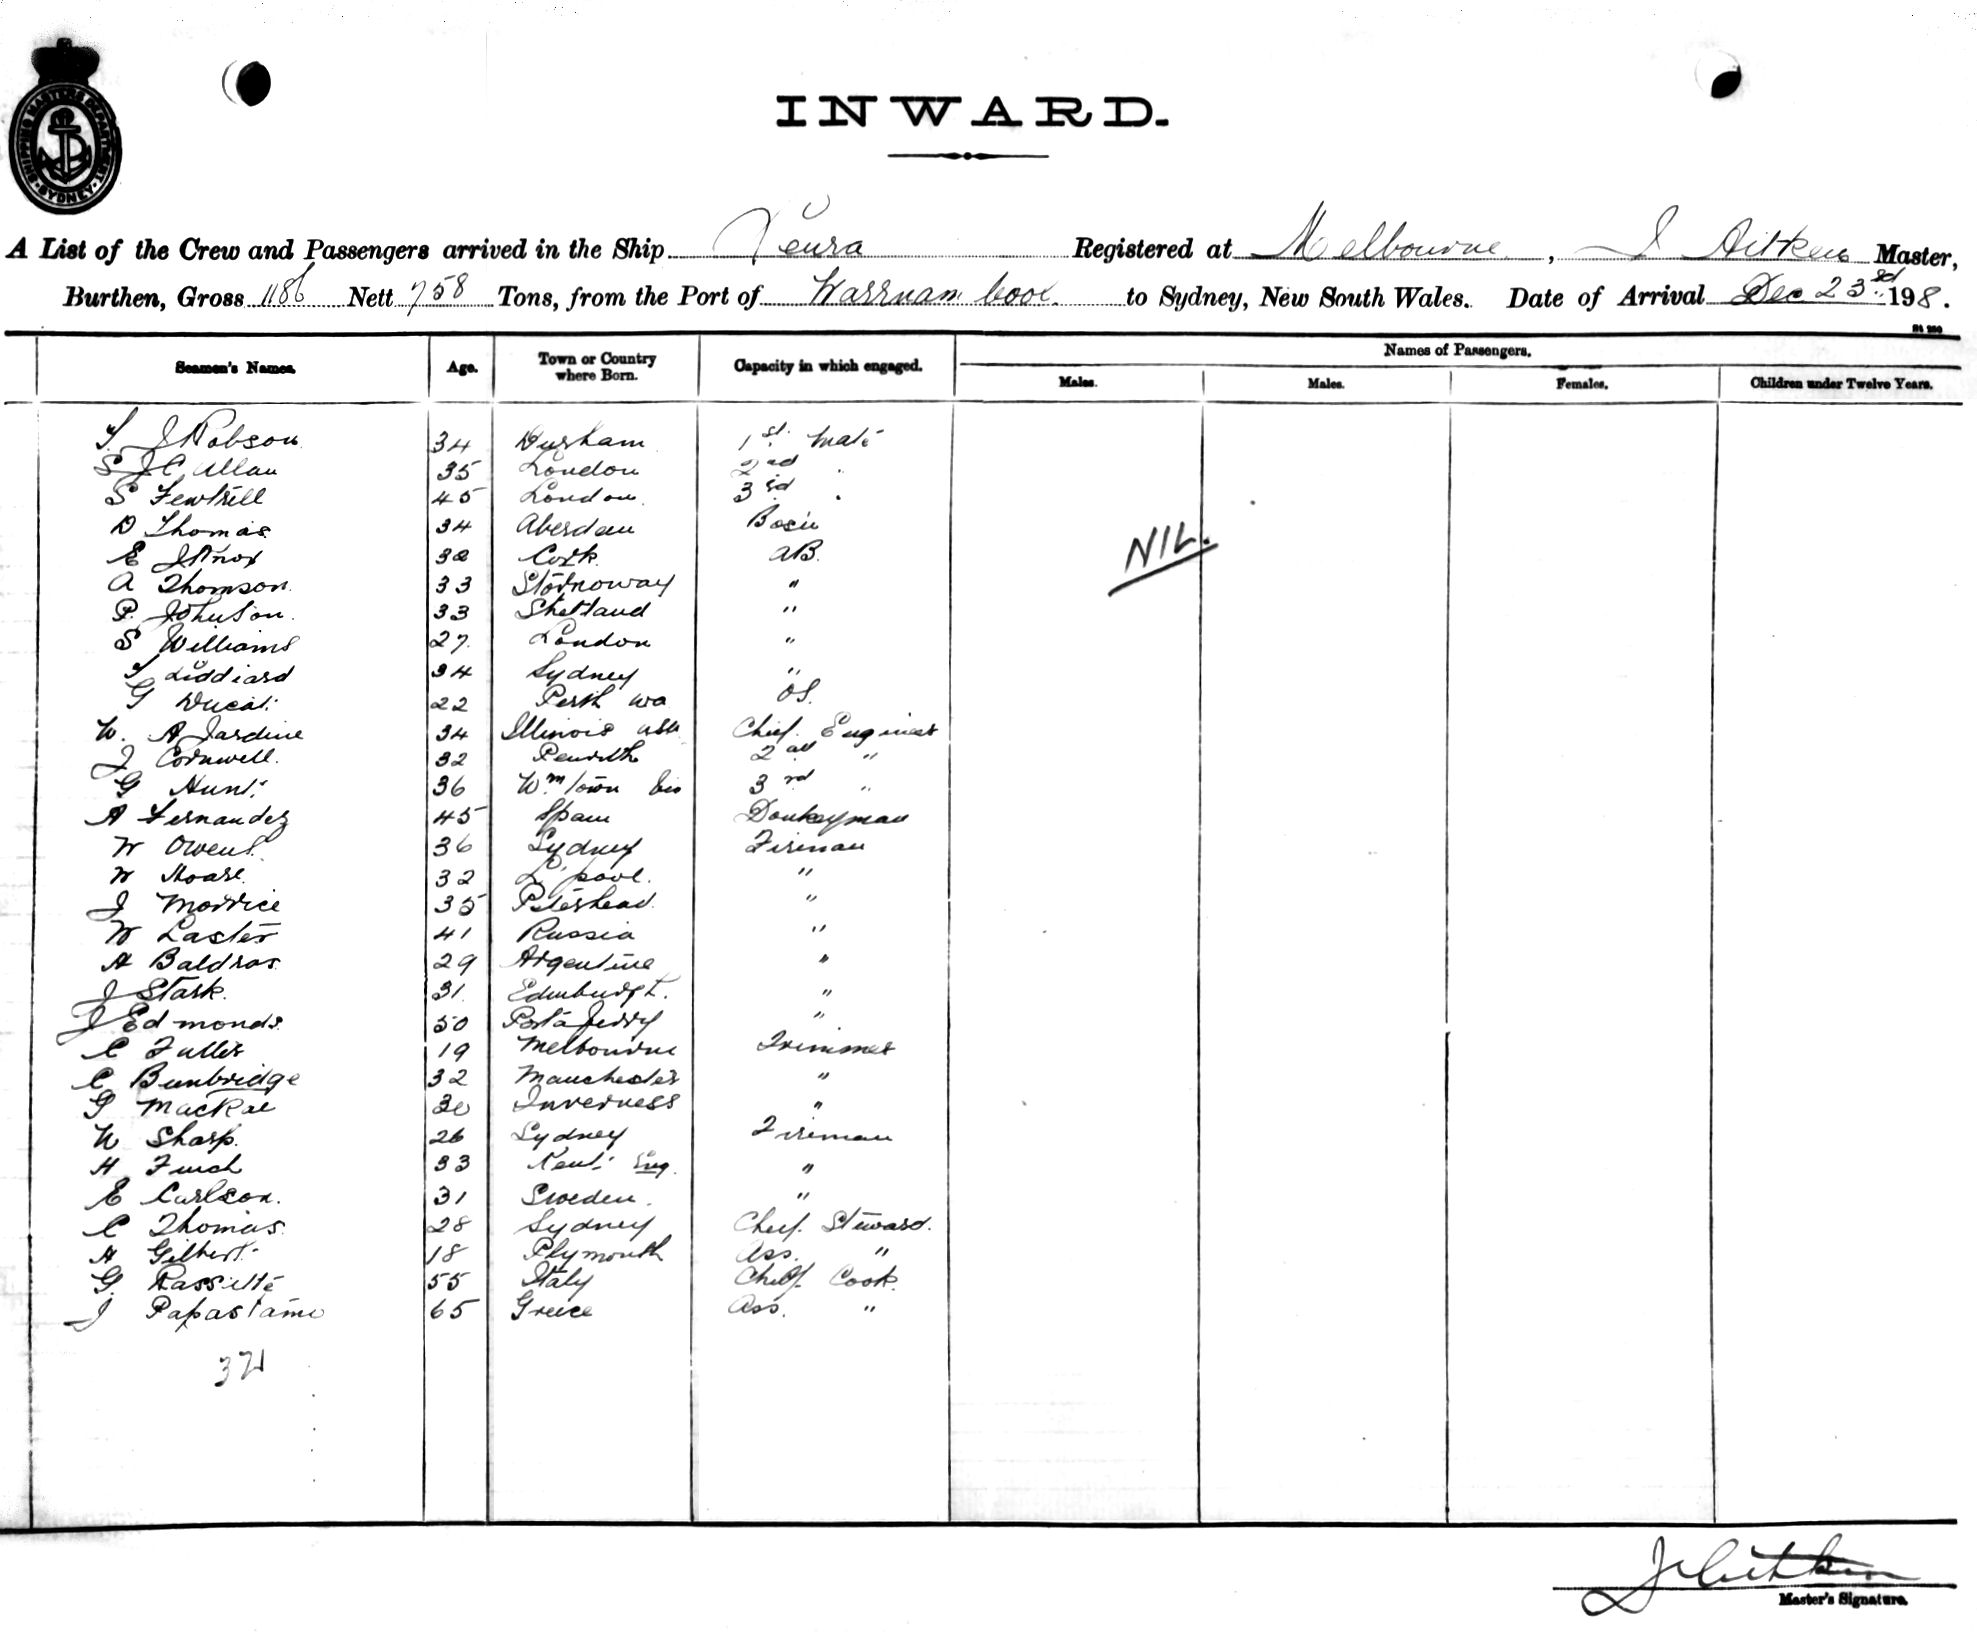 SHIPPING MASTER'S DEPARTMENT SYDNEY
INWARD.
A List of the Crew and Passengers arrived in the Ship Registered at Melbourne, J Aitken Master,
Burthen, Gross 1186 Nett 758 Tons, from the Port of Warrnambool. to Sydney, New South Wales. Date of Arrival Dec 23rd 198.
Seamen's Names. Age. Town or Country where Born. Capacity in which engaged. Names of Passengers.
Males. Males. Females. Children under Twelve Years.
T. J Robson 34 Durham 1st. Mate
S J C Allan 35 London 2nd "
S Fewtrell 45 London 3rd "
D Thomas 34 Aberdeen Bosn
E J Knox 38 Cork AB.
NIL.
A Thomson 33 Stornoway "
P. Johnson 33 Shetland "
S Williams 27 London "
T Liddiard 34 Sydney "
G Ducat 22 Perth WA OS.
W. A Jardine 34 Illinois USA Chief Engineer
J Cornwell. 32 Penrith 2nd "
G Hunt 36 Wmtown 3rd "
A Fernandez 45 Spain Donkeyman
W Owens. 36 Sydney Fireman
W Hoare. 32 L'pool. "
J Morrice 35 Peterhead "
W Laster 41 Russia "
A Baldras 29 Argentine "
J Stark. 31. Edinburgh. "
J Edmonds. 50 Portaferry "
C Fuller 19 Melbourne Trimmer
C Bunbridge 32 Manchester "
G MacRae 30 Inverness "
W Sharp. 26 Sydney Fireman
H Finch 33 Kent Eng. "
E Carlson. 31 Sweden. "
C Thomas. 28 Sydney Chief. Steward.
A Gilbert. 18 Plymouth Ass. "
G. 55 Italy Chief Cook.
J Papastamo 65 Greece Ass. "
371
J Aitken
Master's Signature.